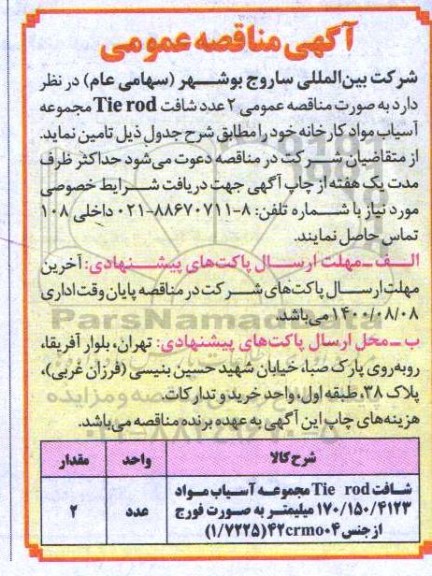 آگهی مناقصه عمومی
شرکت بین‌المللی ساروج بوشهر (سهامی عام) در نظر
دارد به صورت مناقصه عمومی ۲ عدد شافت Tie rod مجموعه
آسیاب مواد کارخانه خود را مطابق شرح جدول ذیل تامین نماید.
از متقاضیان شرکت در مناقصه دعوت می‌شود حداکثر ظرف
مدت یک هفته از چاپ آگهی جهت دریافت شرایط خصوصی
مورد نیاز با شماره تلفن: ۸-۸۸۶۷۰۷۱۱-۰۲۱ داخلی ۱۰۸
تماس حاصل نمایند.
الف ـ مهلت ارسال پاکت‌های پیشنهادی: آخرین
مهلت ارسال پاکت‌های شرکت در مناقصه پایان وقت اداری
۱۴۰۰/۰۸/۰۸ می‌باشد.
ParsNamadData
ب ـ محل ارسال پاکت‌های پیشنهادی: تهران، بلوار آفریقا،
روبه‌روی پارک صبا، خیابان شهید حسین بنیسی (فرزان غربی)،
پلاک ۳۸، طبقه اول، واحد خرید و تدارکات.
هزینه‌های چاپ این آگهی به عهده برنده مناقصه می‌باشد.
شرح کالا واحد مقدار
شافت Tie rod مجموعه آسیاب مواد
۱۷۰/۱۵۰/۴۱۲۳ میلیمتر به صورت فورج عدد ۲
از جنس ۴۲crmo۰۴ (۱/۷۲۲۵)